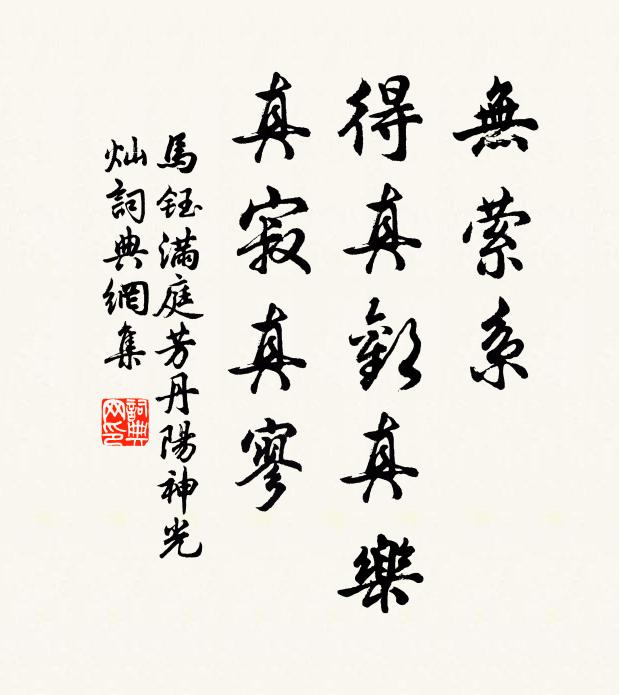 無縈系
得真歡真樂
真寂真寥
馬鈺滿庭芳丹陽神光
灿詞典網集
詞典
网印